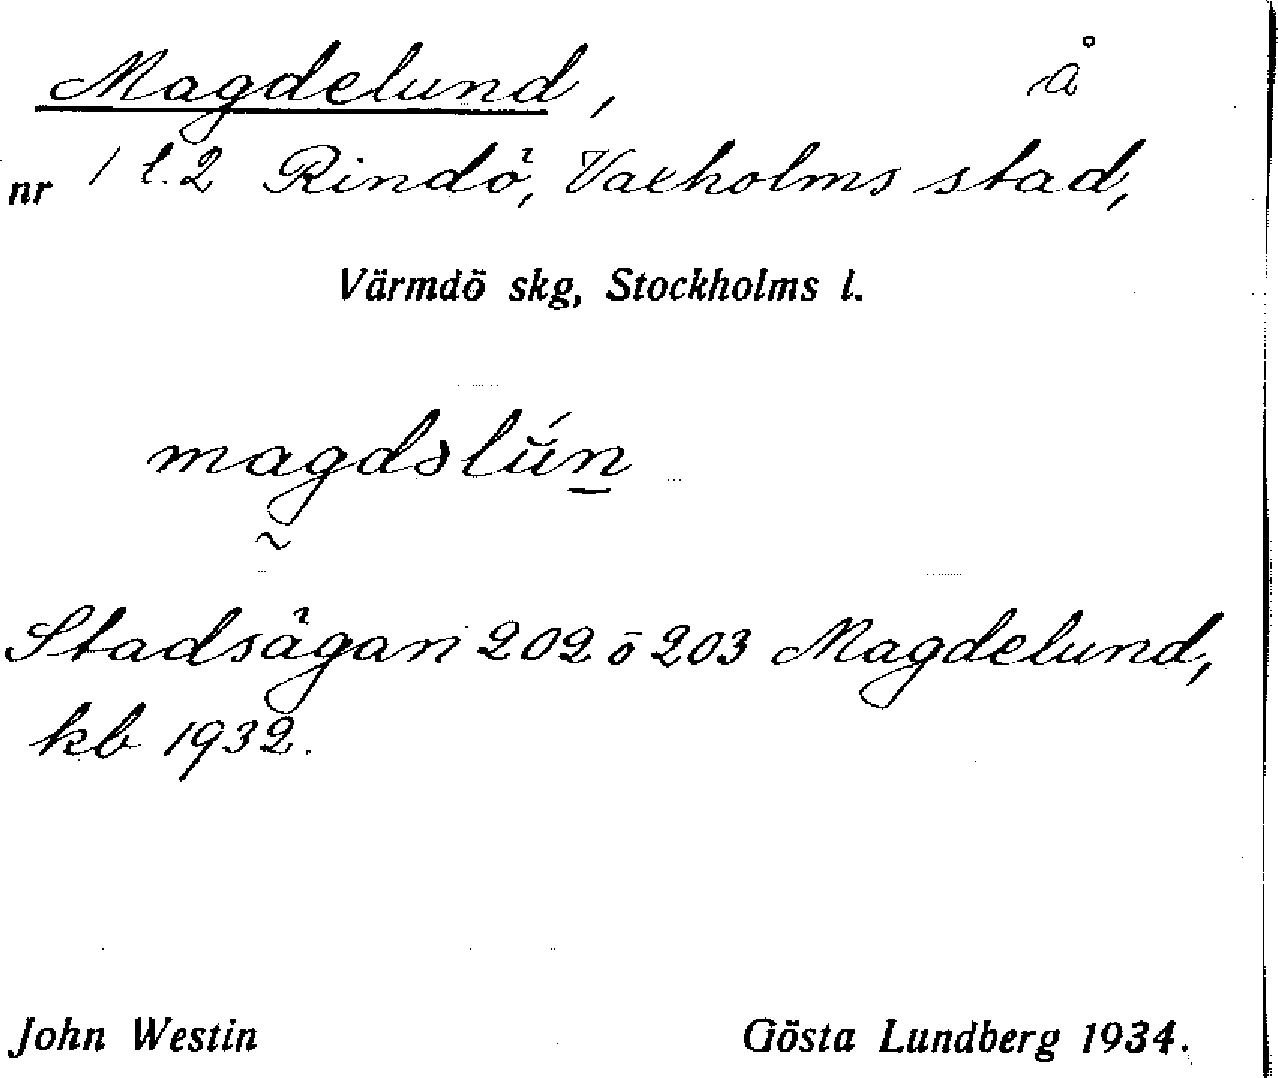 Magdelund, å
nr 1 l. 2 Rindö, Vaxholms stad,
Värmdö skg, Stockholms l.
magdəlún
Stadsägan 202 o 203 Magdelund,
kb 1932.
John Westin Gösta Lundberg 1934.